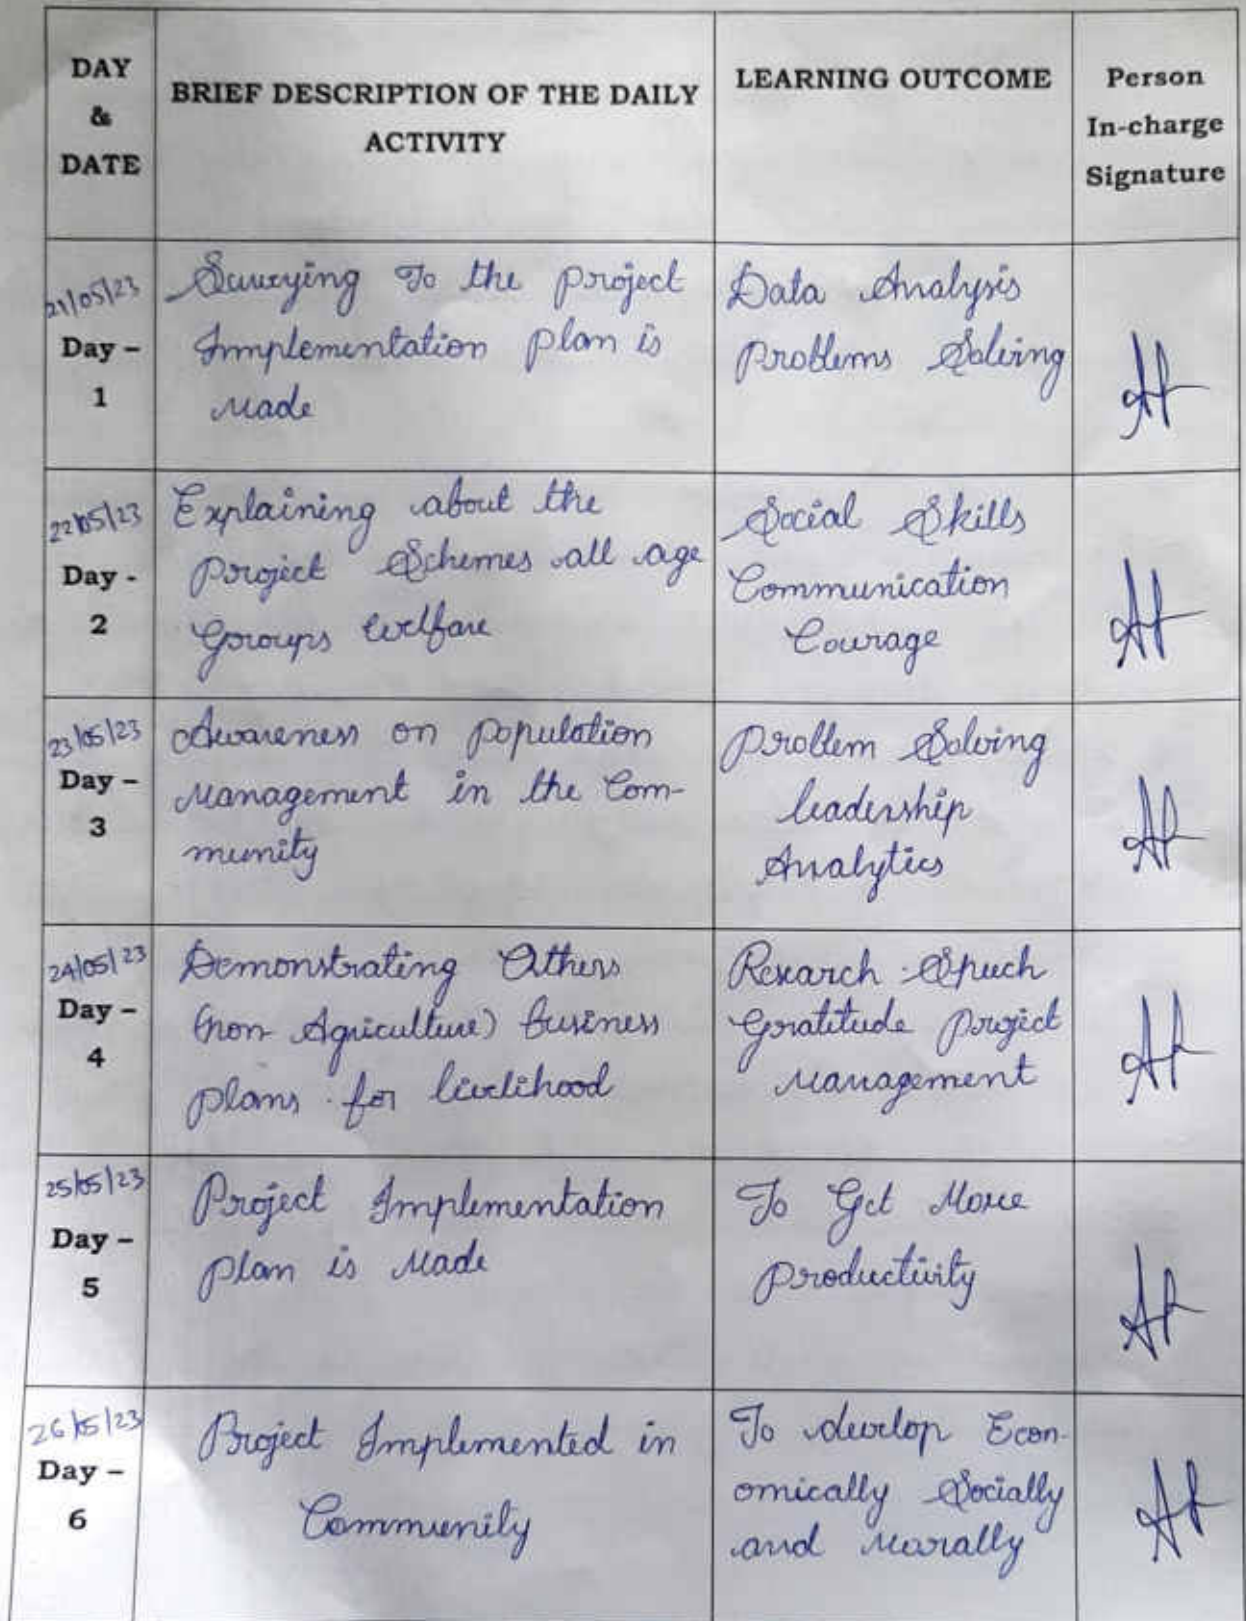 DAY
&
DATE
BRIEF DESCRIPTION OF THE DAILY
ACTIVITY
LEARNING OUTCOME
Person
In-charge
Signature
21/05/23
Day –
1
Surveying To the project
Implementation plan is
Made
Data Analysis
Problems Solving
22/05/23
Day -
2
Explaining about the
Project Schemes all age
Groups Welfare
Social Skills
Communication
Courage
23/05/23
Day –
3
Awareness on population
Management in the Com-
munity
Problem Solving
leadership
Analytics
24/05/23
Day –
4
Demonstrating Others
(non Agriculture) business
plans for livelihood
Research Speech
Gratitude project
Management
25/05/23
Day –
5
Project Implementation
plan is Made
To Get More
Productivity
26/05/23
Day –
6
Project Implemented in
Community
To develop Econ-
omically Socially
and Morally